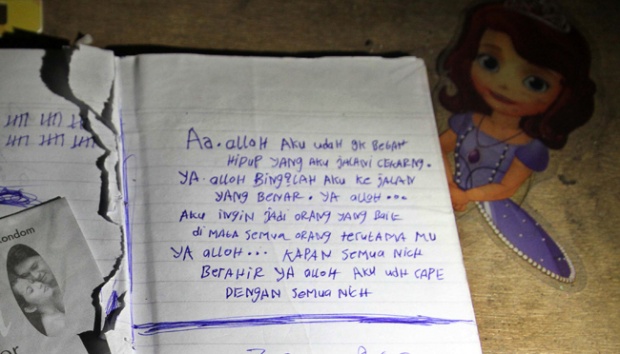 ondom
or
Aa. alloH AKU udaH gk BetaH
HIDUP YANG AKU JALANI CEKARNG.
YA. alloH BINGILAH AKU KE JALAN
YANG BENAR. YA alloH...
AKU INGIN JADI ORANG YANG BAIK
di MATA SEMUA ORANG TERUTAMA MU
YA alloH... KAPAN SEMUA NICH
BERAHIR YA alloH AKU UDH CAPE
DENGAN SEMUA NICH